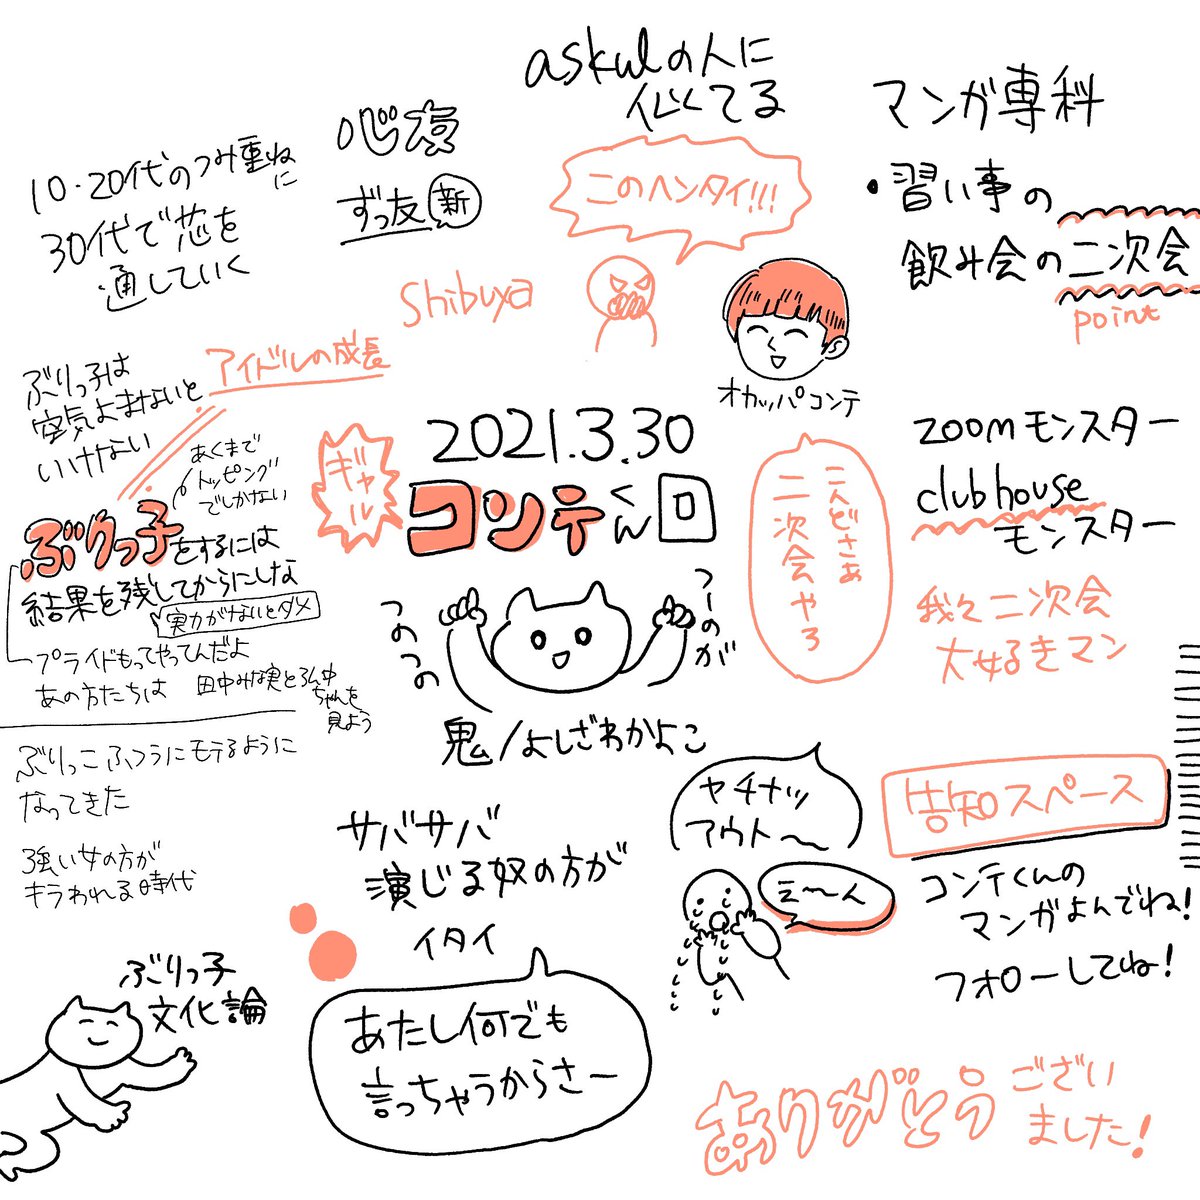 askulの人に
似てる
マンガ専科
・習い事の
飲み会の二次会
point
心友
ずっ友 新
10・20代のつみ重ねに
30代で芯を
通していく
このヘンタイ!!!
Shibuya
オカッパコンテ
アイドルの成長
ぶりっ子は
空気よまないと
いけない
あくまで
トッピング
でしかない
ぶりっ子をするには
結果を残してからにしな
実力がないとダメ
プライドもってやってんだよ
あの方たちは
田中みな実と
ちゃんを
見よう
ぶりっこふつうにモテるように
なってきた
強い女の方が
キラわれる時代
2021.3.30
ギャル
コンテくん回
つのつの
つーのが
鬼/よしざわかよこ
二人どさぁ
二次会やろ
zoomモンスター
clubhouse
モンスター
我々二次会
大好きマン
サバサバ
演じる奴の方が
イタイ
あたし何でも
言っちゃうからさー
ヤチナッ
アウト〜
え〜ん
告知スペース
コンテくんの
マンガよんでね!
フォローしてね!
ぶりっ子
文化論
ありがとうござい
ました!